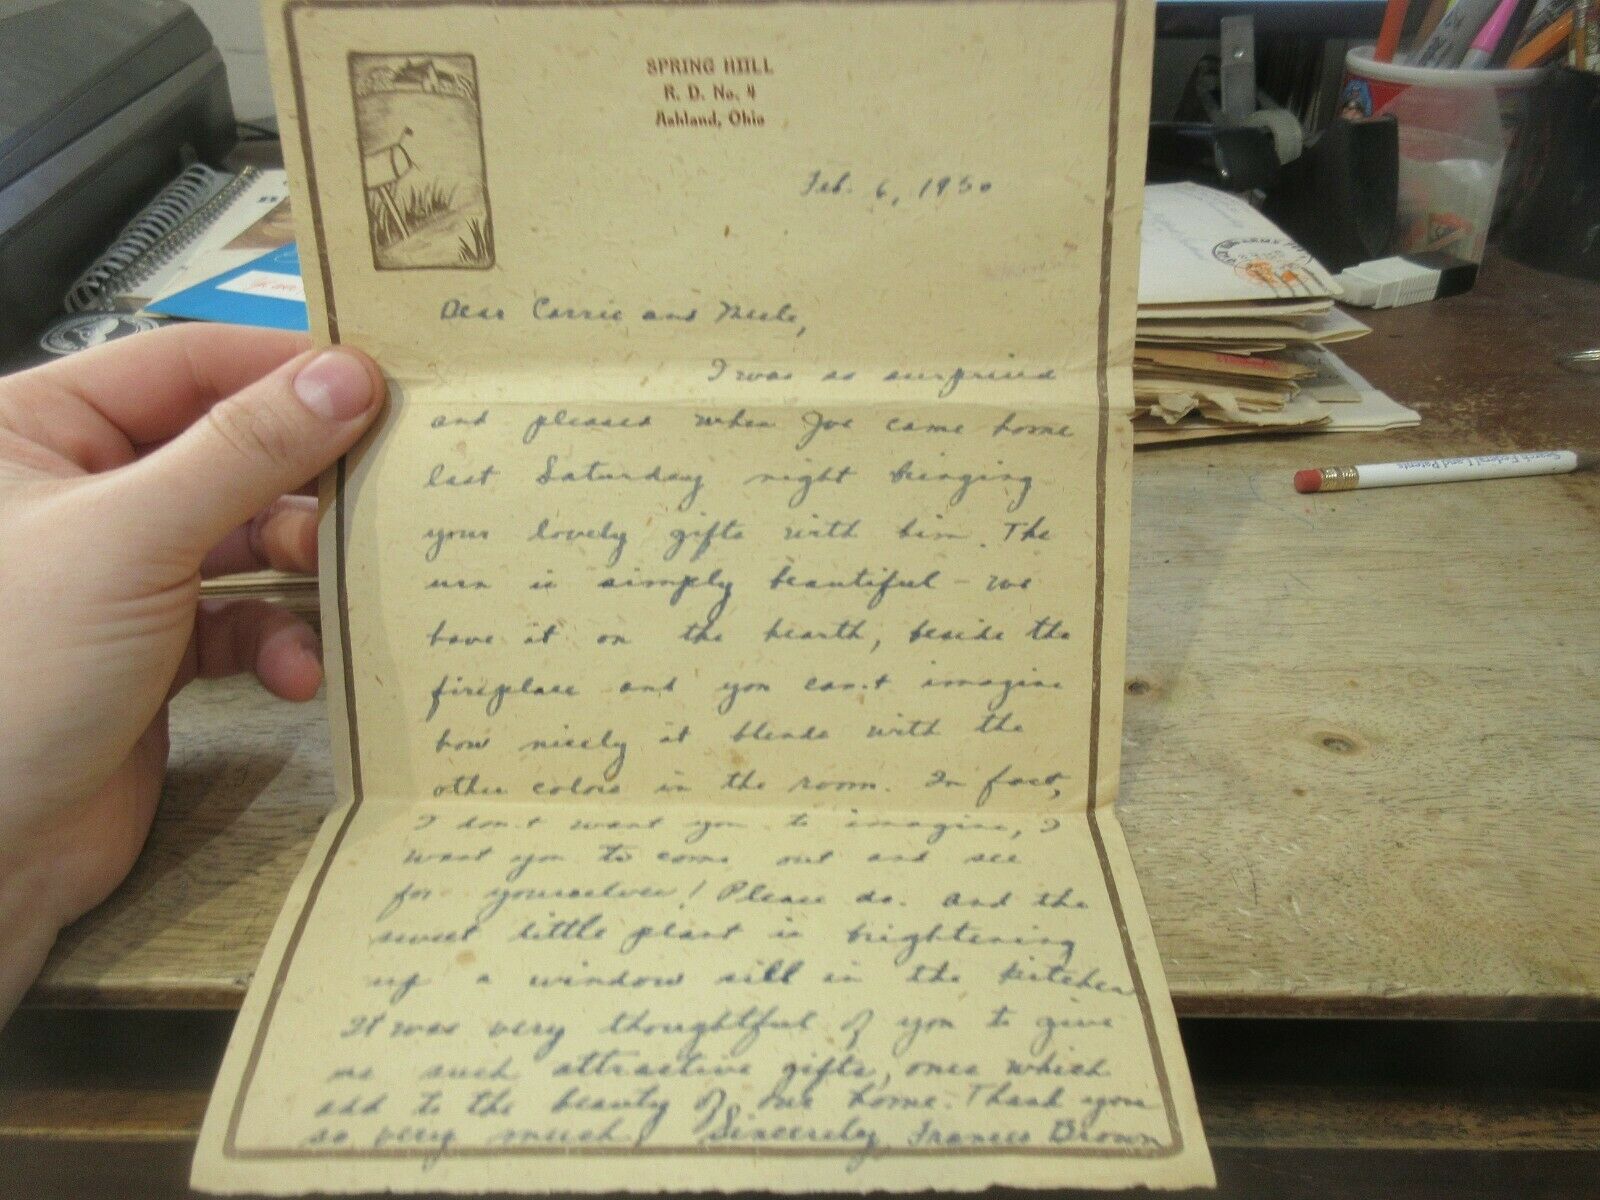 SPRING HILL
R. D. No. 4
Ashland, Ohio
Feb. 6, 1950
Dear Carrie and Merle,
I was so surprised
and pleased when Joe came home
last Saturday night bringing
your lovely gifts with him. The
urn is simply beautiful - we
have it on the hearth, beside the
fireplace and you can't imagine
how nicely it blends with the
other colors in the room. In fact,
I don't want you to imagine, I
want you to come out and see
for yourselves! Please do. And the
sweet little plant is brightening
up a window sill in the kitchen
It was very thoughtful of you to give
me such attractive gifts, ones which
add to the beauty of our home. Thank you
so very much! Sincerely, Frances Brown
Search Federal Land Patents